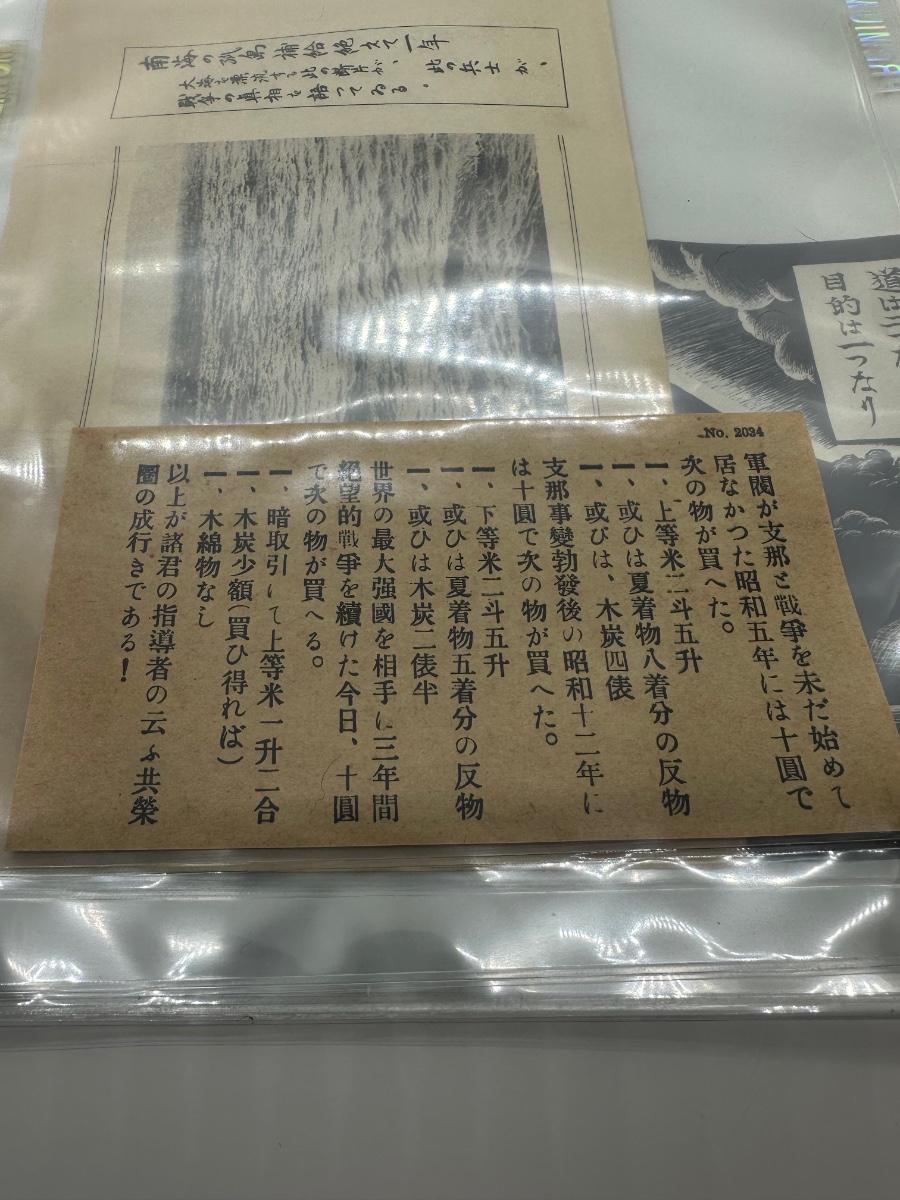 南海の孤島 補給絶えて一年
大海を漂流する此の断片が、 此の兵士が、
戦争の真相を語つてゐる。
目的は一つなり
No. 2034
軍閥が支那と戰爭を未だ始めて
居なかつた昭和五年には十圓で
次の物が買へた。
一、上等米二斗五升
一、或ひは夏着物八着分の反物
一、或ひは、木炭四俵
支那事變勃發後の昭和十二年に
は十圓で次の物が買へた。
一、下等米二斗五升
一、或ひは夏着物五着分の反物
一、或ひは木炭二俵半
世界の最大强國を相手に三年間
絕望的戰爭を續けた今日、十圓
で次の物が買へる。
一、暗取引にて上等米一升二合
一、木炭少額(買ひ得れば)
一、木綿物なし
以上が諸君の指導者の云ふ共榮
圈の成行きである!